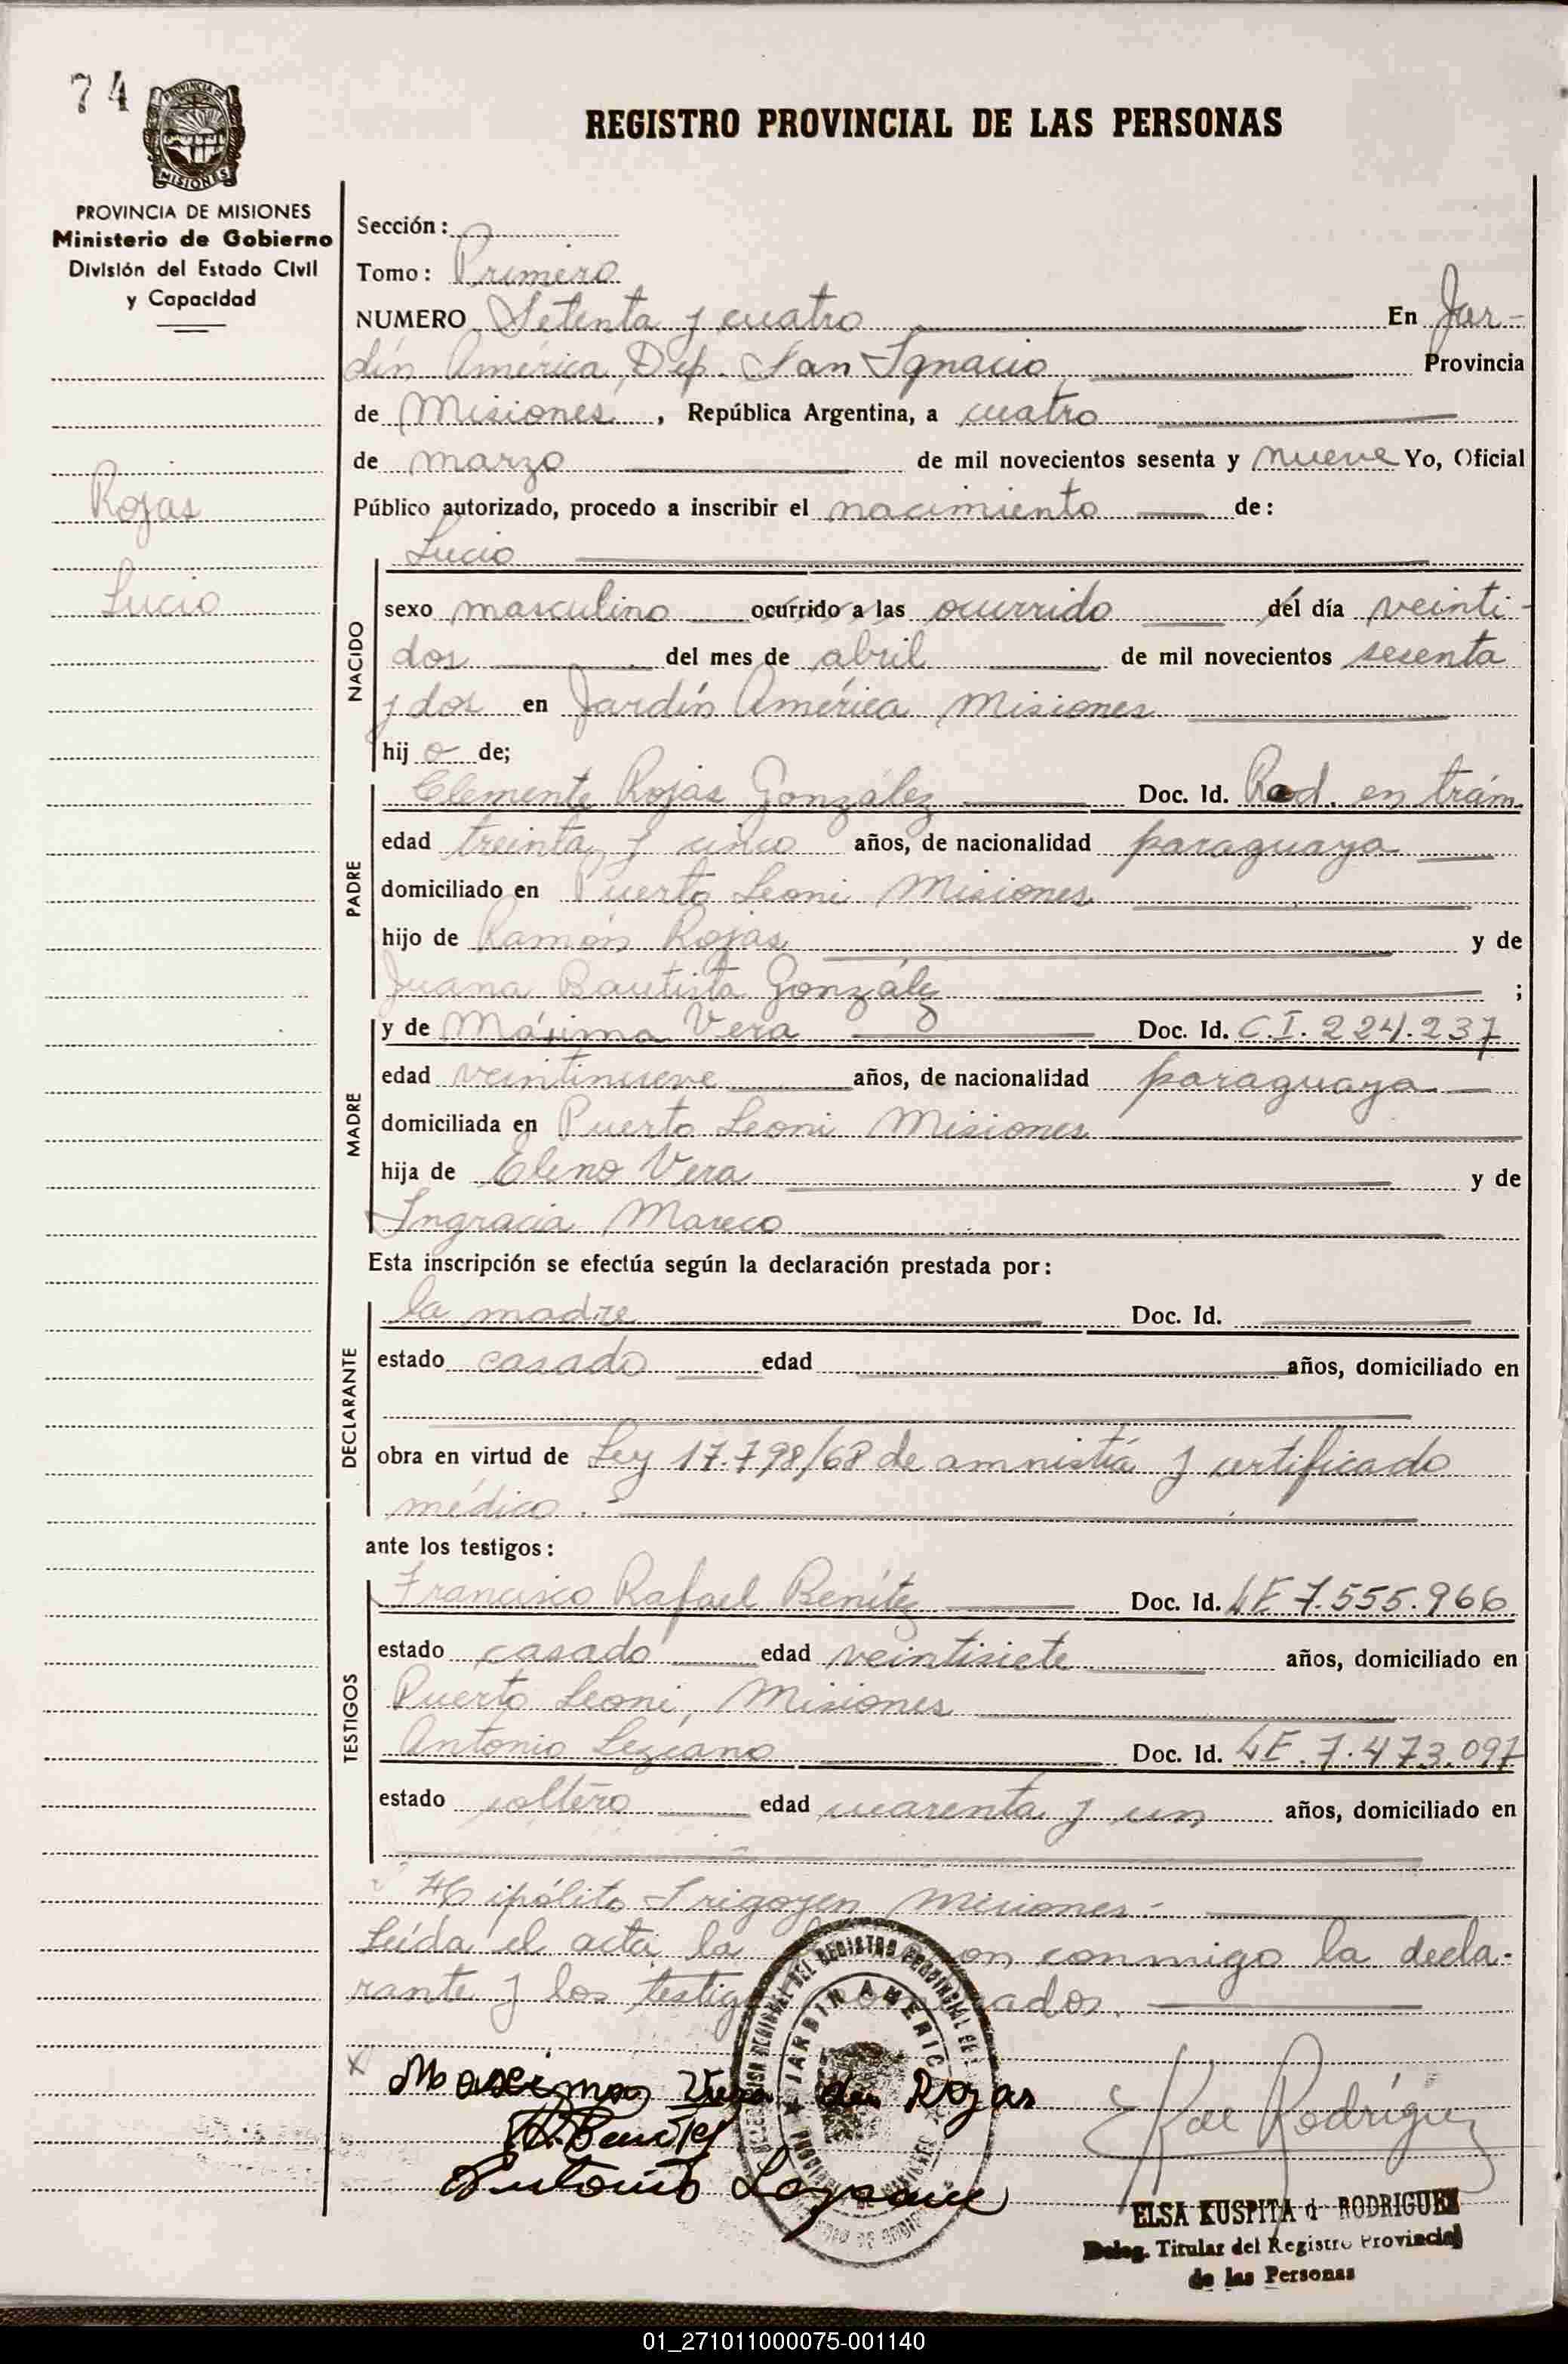 74
PROVINCIA DE MISIONES
REGISTRO PROVINCIAL DE LAS PERSONAS
PROVINCIA DE MISIONES
Ministerio de Gobierno
División del Estado Civil
y Capacidad
Rojas
Lucio
Sección:
Tomo: Primero
NUMERO Setenta y cuatro En Jar-
dín América, Dep. San Ignacio, Provincia
de Misiones, República Argentina, a cuatro
de marzo de mil novecientos sesenta y nueve Yo, Oficial
Público autorizado, procedo a inscribir el nacimiento de:
Lucio
NACIDO
sexo masculino ocurrido a las ocurrido del día veinti-
dos del mes de abril de mil novecientos sesenta
y dos en Jardín América Misiones
hijo de;
PADRE
Clemente Rojas González Doc. Id. Rad. en trám.
edad treinta y cinco años, de nacionalidad paraguaya
domiciliado en Puerto Leoni Misiones
hijo de Ramón Rojas y de
Juana Bautista González ;
MADRE
y de Máxima Vera Doc. Id. C.I. 224.237
edad veintinueve años, de nacionalidad paraguaya
domiciliada en Puerto Leoni Misiones
hija de Eleno Vera y de
Ingracia Mareco
Esta inscripción se efectúa según la declaración prestada por:
DECLARANTE
la madre Doc. Id.
estado casado edad años, domiciliado en
obra en virtud de Ley 17.798/68 de amnistía y certificado
médico.
ante los testigos:
TESTIGOS
Francisco Rafael Benítez Doc. Id. LE 7.555.966
estado casado edad veintisiete años, domiciliado en
Puerto Leoni, Misiones
Antonio Lezcano Doc. Id. LE. 7.473.097
estado soltero edad cuarenta y un años, domiciliado en
Hipólito Irigoyen Misiones.-
Leída el acta la conmigo la decla-
rante y los testigos
JARDIN AMERICA
Maxima Vera de Rojas
R. Benítez
Antonio Lezcano
E K de Rodríguez
ELSA KUSPITA d RODRIGUEZ
Deleg. Titular del Registro Provincial
de las Personas
01_271011000075-001140